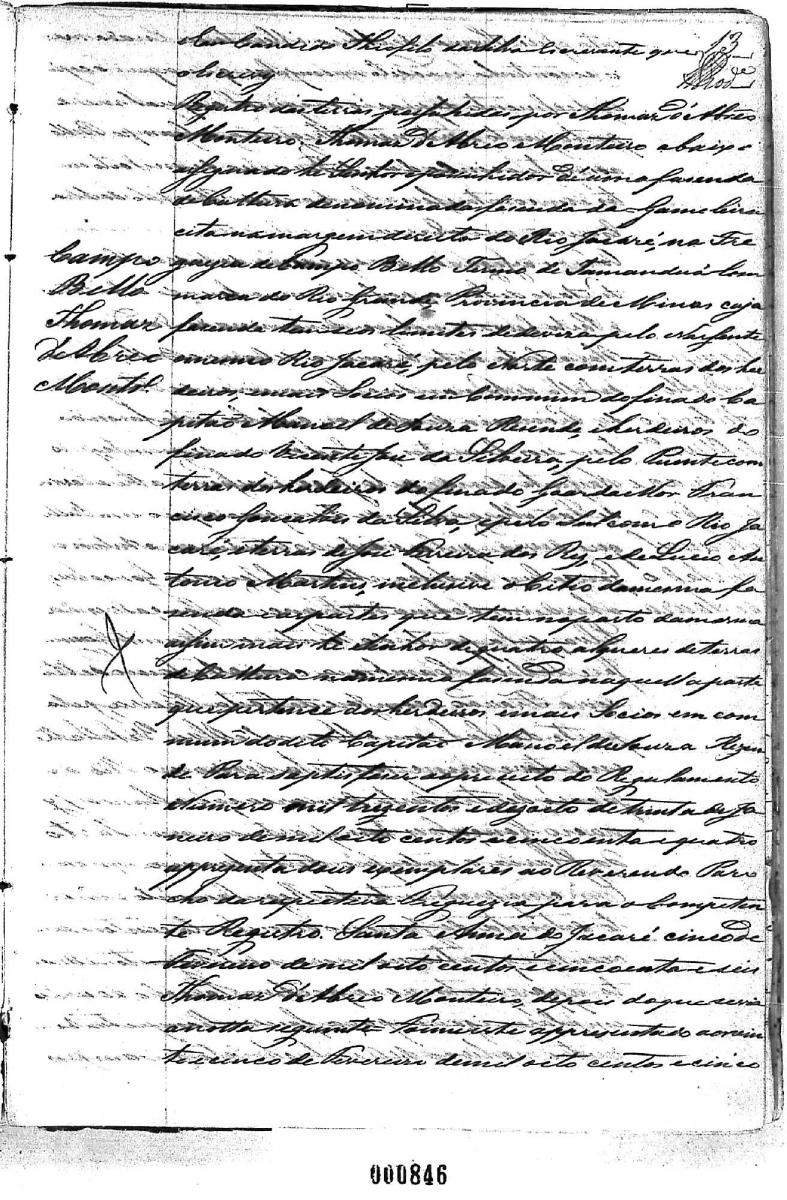 13
Eu Candido Theofilo escrevente que
o escrevy
Registro das terras possuhidas por Thomaz d'Abreo
Monteiro. Thomaz d'Abreo Monteiro abaixo
assignado he Senhor e possuhidor de uma fasenda
de Cultura denominada fasenda da Gameleira
cita na margem direita do Rio Jacaré, na Fre
guezia de Campo Bello Termo de Tamanduá Com
marca do Rio Grande Provincia de Minas cuja
fasenda tem seos limites pelo Nascente
mesmo Rio Jacaré, pelo Norte com terras dos her
deiros, e mais Socios em Commum do finado Ca
pitão Manoel de Moura Resende, e herdeiros do
finado Vicente José de pelo Puente com
terras dos herdeiros do finado Guarda Mor Fran
cisco Gonçalves da Silva, e pelo Sul com o Rio Ja
caré, e terras de José Pereira dos Reys, e de Lucio An
tonio Martins, inclusive o Citio da mesma fa
senda e as partes que tem no pasto da mesma
assim mais he Senhor de quatro alqueres de terras
de Cultura na mesma fasenda naquella parte
que pertence aos herdeiros e mais Socios em com
mum do dito Capitão Manoel de Moura Rezen
de Para satisfaser o preceito do Regulamento
Numero mil trezentos e dezoito de trinta de Ja
neiro de mil oito centos e cincoenta e quatro
appresenta dous exemplares ao Reverendo Paro
cho da respectiva Freguezia para o Competen
te Registro. Santa Anna do Jacaré cinco de
Fevereiro de mil oito centos e cincoenta e seis
Thomaz d'Abreo Monteiro, depois do que se via
a notta seguinte Foi appresentado aos vin
te e cinco de Fevereiro de mil oito centos e cinco
Campo
Bello
Thomaz
d'Abreo
Montr.º
000846